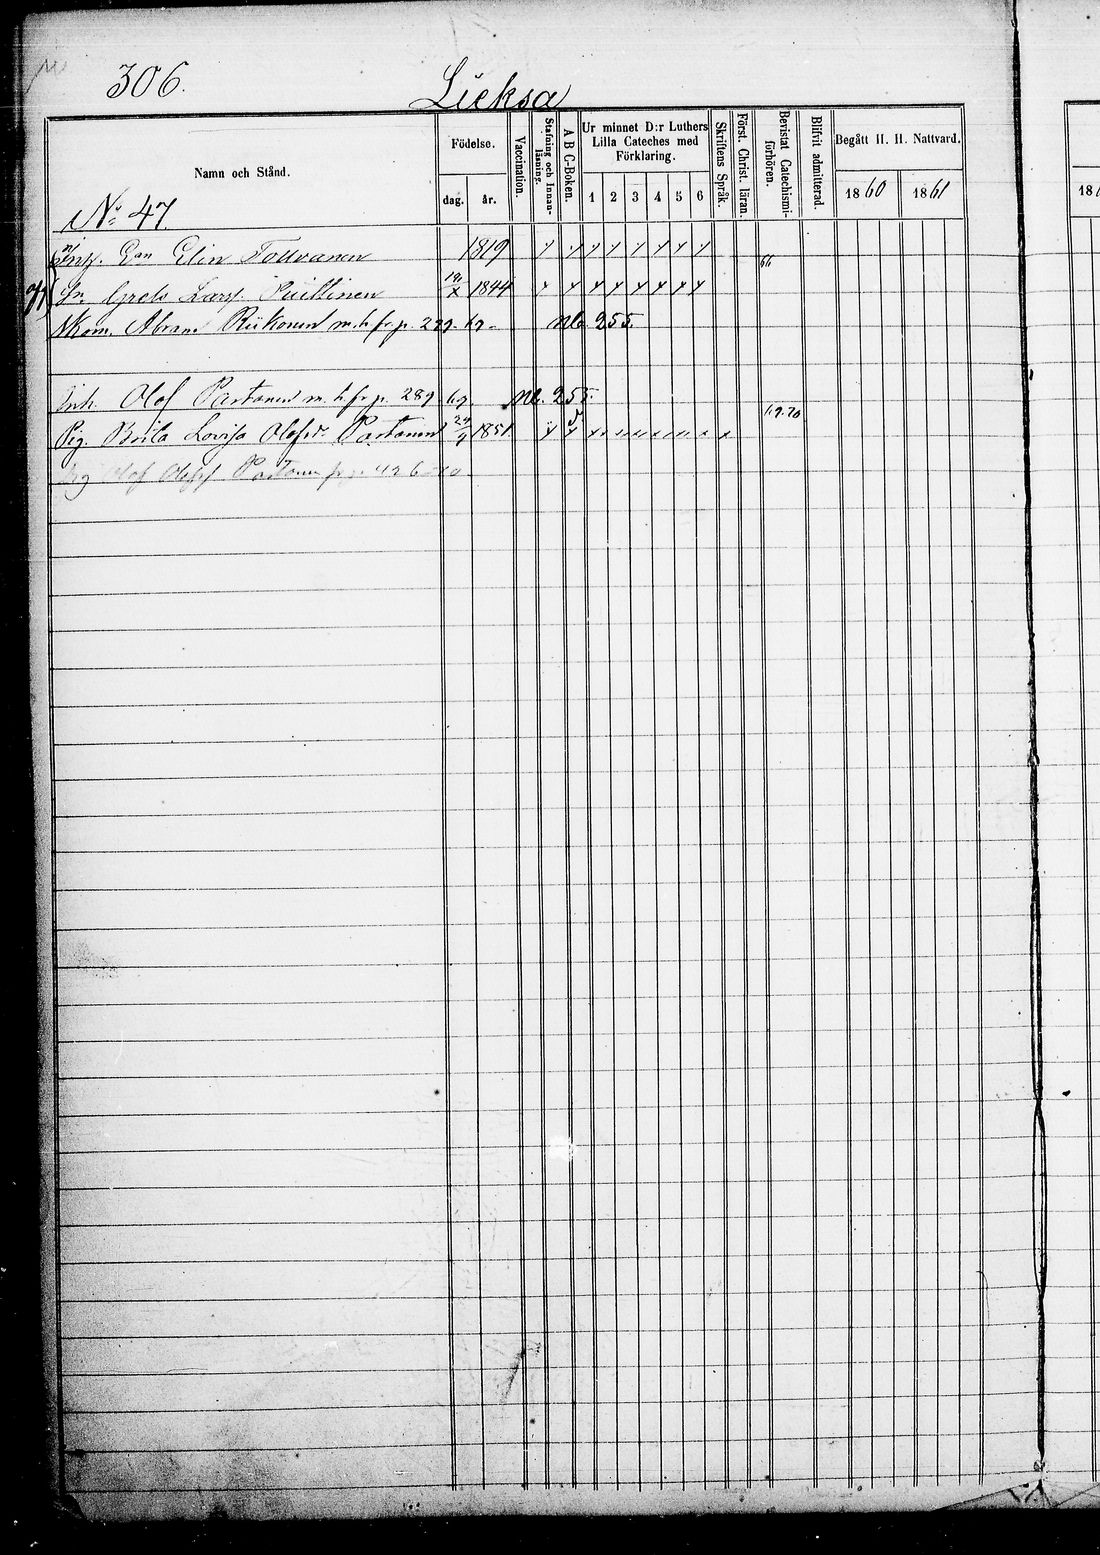 306.
Lieksa
Namn och Stånd.
Födelse.
dag.
år.
Vaccination.
Stafning och Innan-
läsning.
A B C-Boken.
Ur minnet D:r Luthers
Lilla Cateches med
Förklaring.
1 2 3 4 5 6
Skriftens Språk.
Förståt. Christ. läran.
Bevistat Catechismi-
förhören.
Blifvit admitterad.
Begått H. H. Nattvard.
1860 1861
18
No 47.
Elin Tolvanen 1819 x x x x x x x x
66
Greta Larsd. 19/X 1844 x x x x x x x x
Abram Riikonen m. h. fr. p. 69. 255.
Inh. Olof Partanen m. h. fr. p. 289. 69. 255.
69.70
Pig. Brita Lovisa Olofsd. Partanen 1851 x x x x x x x x x
Olof Olofss. Partanen fr. p. 426 70